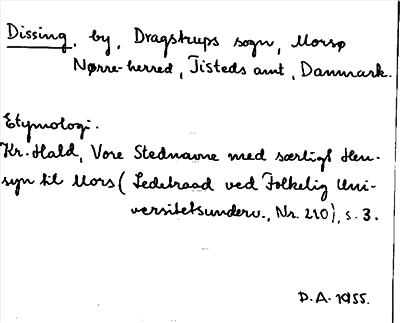 Dissing, by, Dragstrups sogn, Morsø
Nørre-herred, Tisteds amt, Danmark.
Etymologi.
Kr. Hald, Vore Stednavne med særligt Hen-
syn til Mors (Ledetraad ved Folkelig Uni-
versitetsunderv., Nr. 210), s. 3.
P.A. 1955.